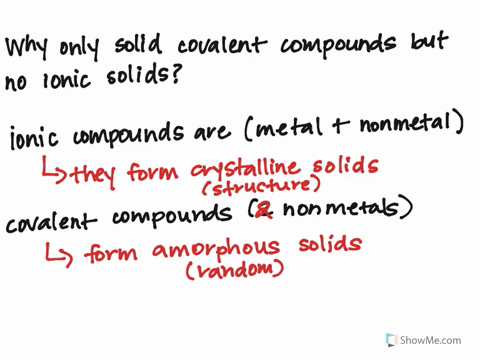 Why only solid covalent compounds but
no ionic solids?
ionic compounds are (metal + nonmetal)
↳ they form crystalline solids
(structure)
covalent compounds (2 nonmetals)
↳ form amorphous solids
(random)
ShowMe.com